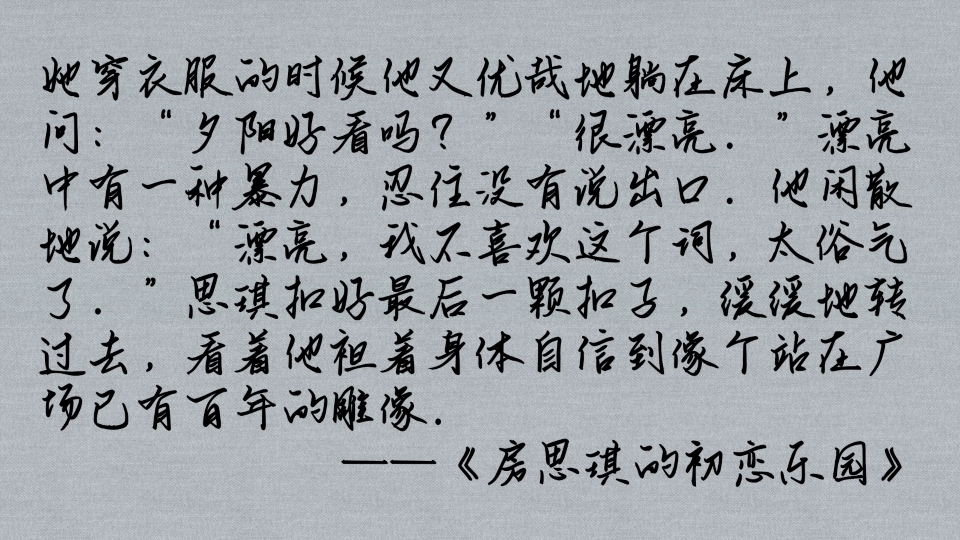 她穿衣服的时候他又优哉地躺在床上，他
问：“夕阳好看吗？”“很漂亮．”漂亮
中有一种暴力，忍住没有说出口．他闲散
地说：“漂亮，我不喜欢这个词，太俗气
了．”思琪扣好最后一颗扣子，缓缓地转
过去，看着他袒着身体自信到像个站在广
场已有百年的雕像．
——《房思琪的初恋乐园》